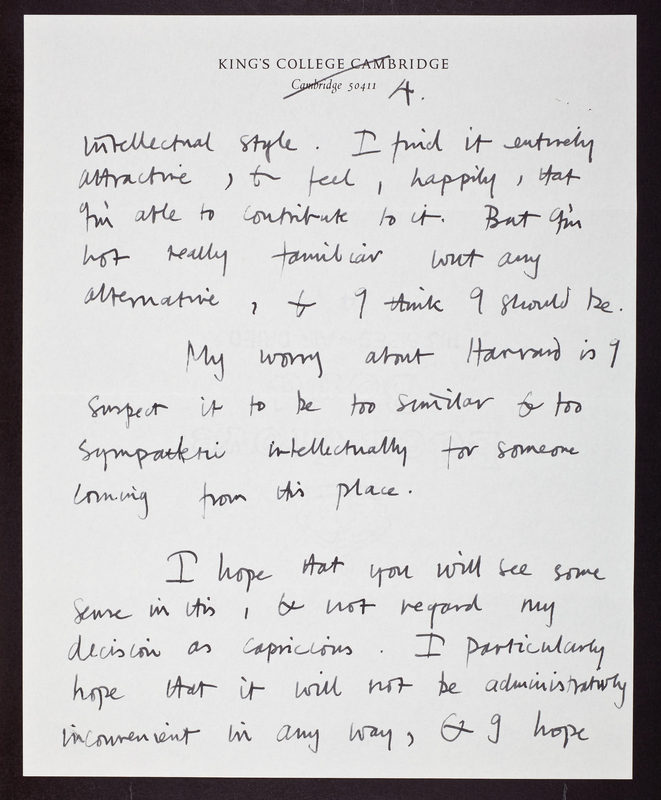 KING'S COLLEGE CAMBRIDGE
Cambridge 50411
4.
intellectual style. I find it entirely
attractive, & feel, happily, that
I'm able to contribute to it. But I'm
not really familiar with any
alternative, & I think I should be.
My worry about Harvard is I
suspect it to be too similar & too
sympathetic intellectually for someone
coming from this place.
I hope that you will see some
sense in this, & not regard my
decision as capricious. I particularly
hope that it will not be administratively
inconvenient in any way, & I hope